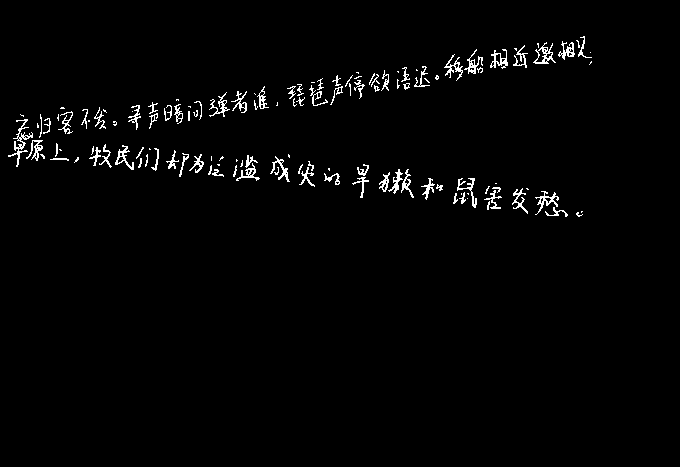 忘归客不发。寻声暗问弹者谁,琵琶声停欲语迟。移船相近邀相见,
草原上,牧民们却为泛滥成灾的旱獭和鼠害发愁。